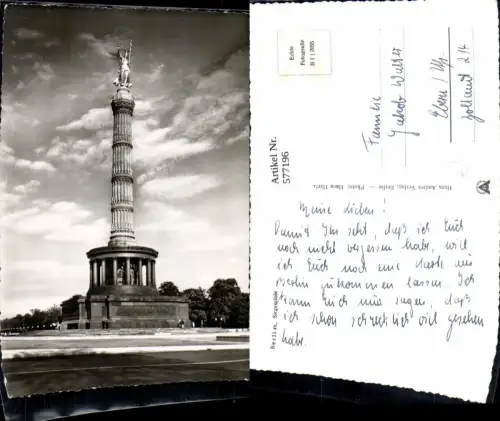 Berlin, Siegessäule
Echte
Fotografie
B 1 / 2035
Artikel Nr.
577196
Hans Andres Verlag, Berlin – Photo: Hans Hartz
Familie
Jakob Walser
Meine Lieben!
Damit Ihr seht, daß ich Euch
noch nicht vergessen habe, will
ich Euch noch eine Karte aus
Berlin zukommen lassen. Ich
kann Euch nur sagen, daß
ich schon schrecklich viel gesehen
habe.